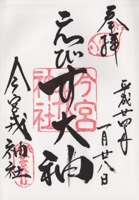 奉拝
平成廿四年
一月廿八日
ゑびす大神
今宮神社
今宮戎神社